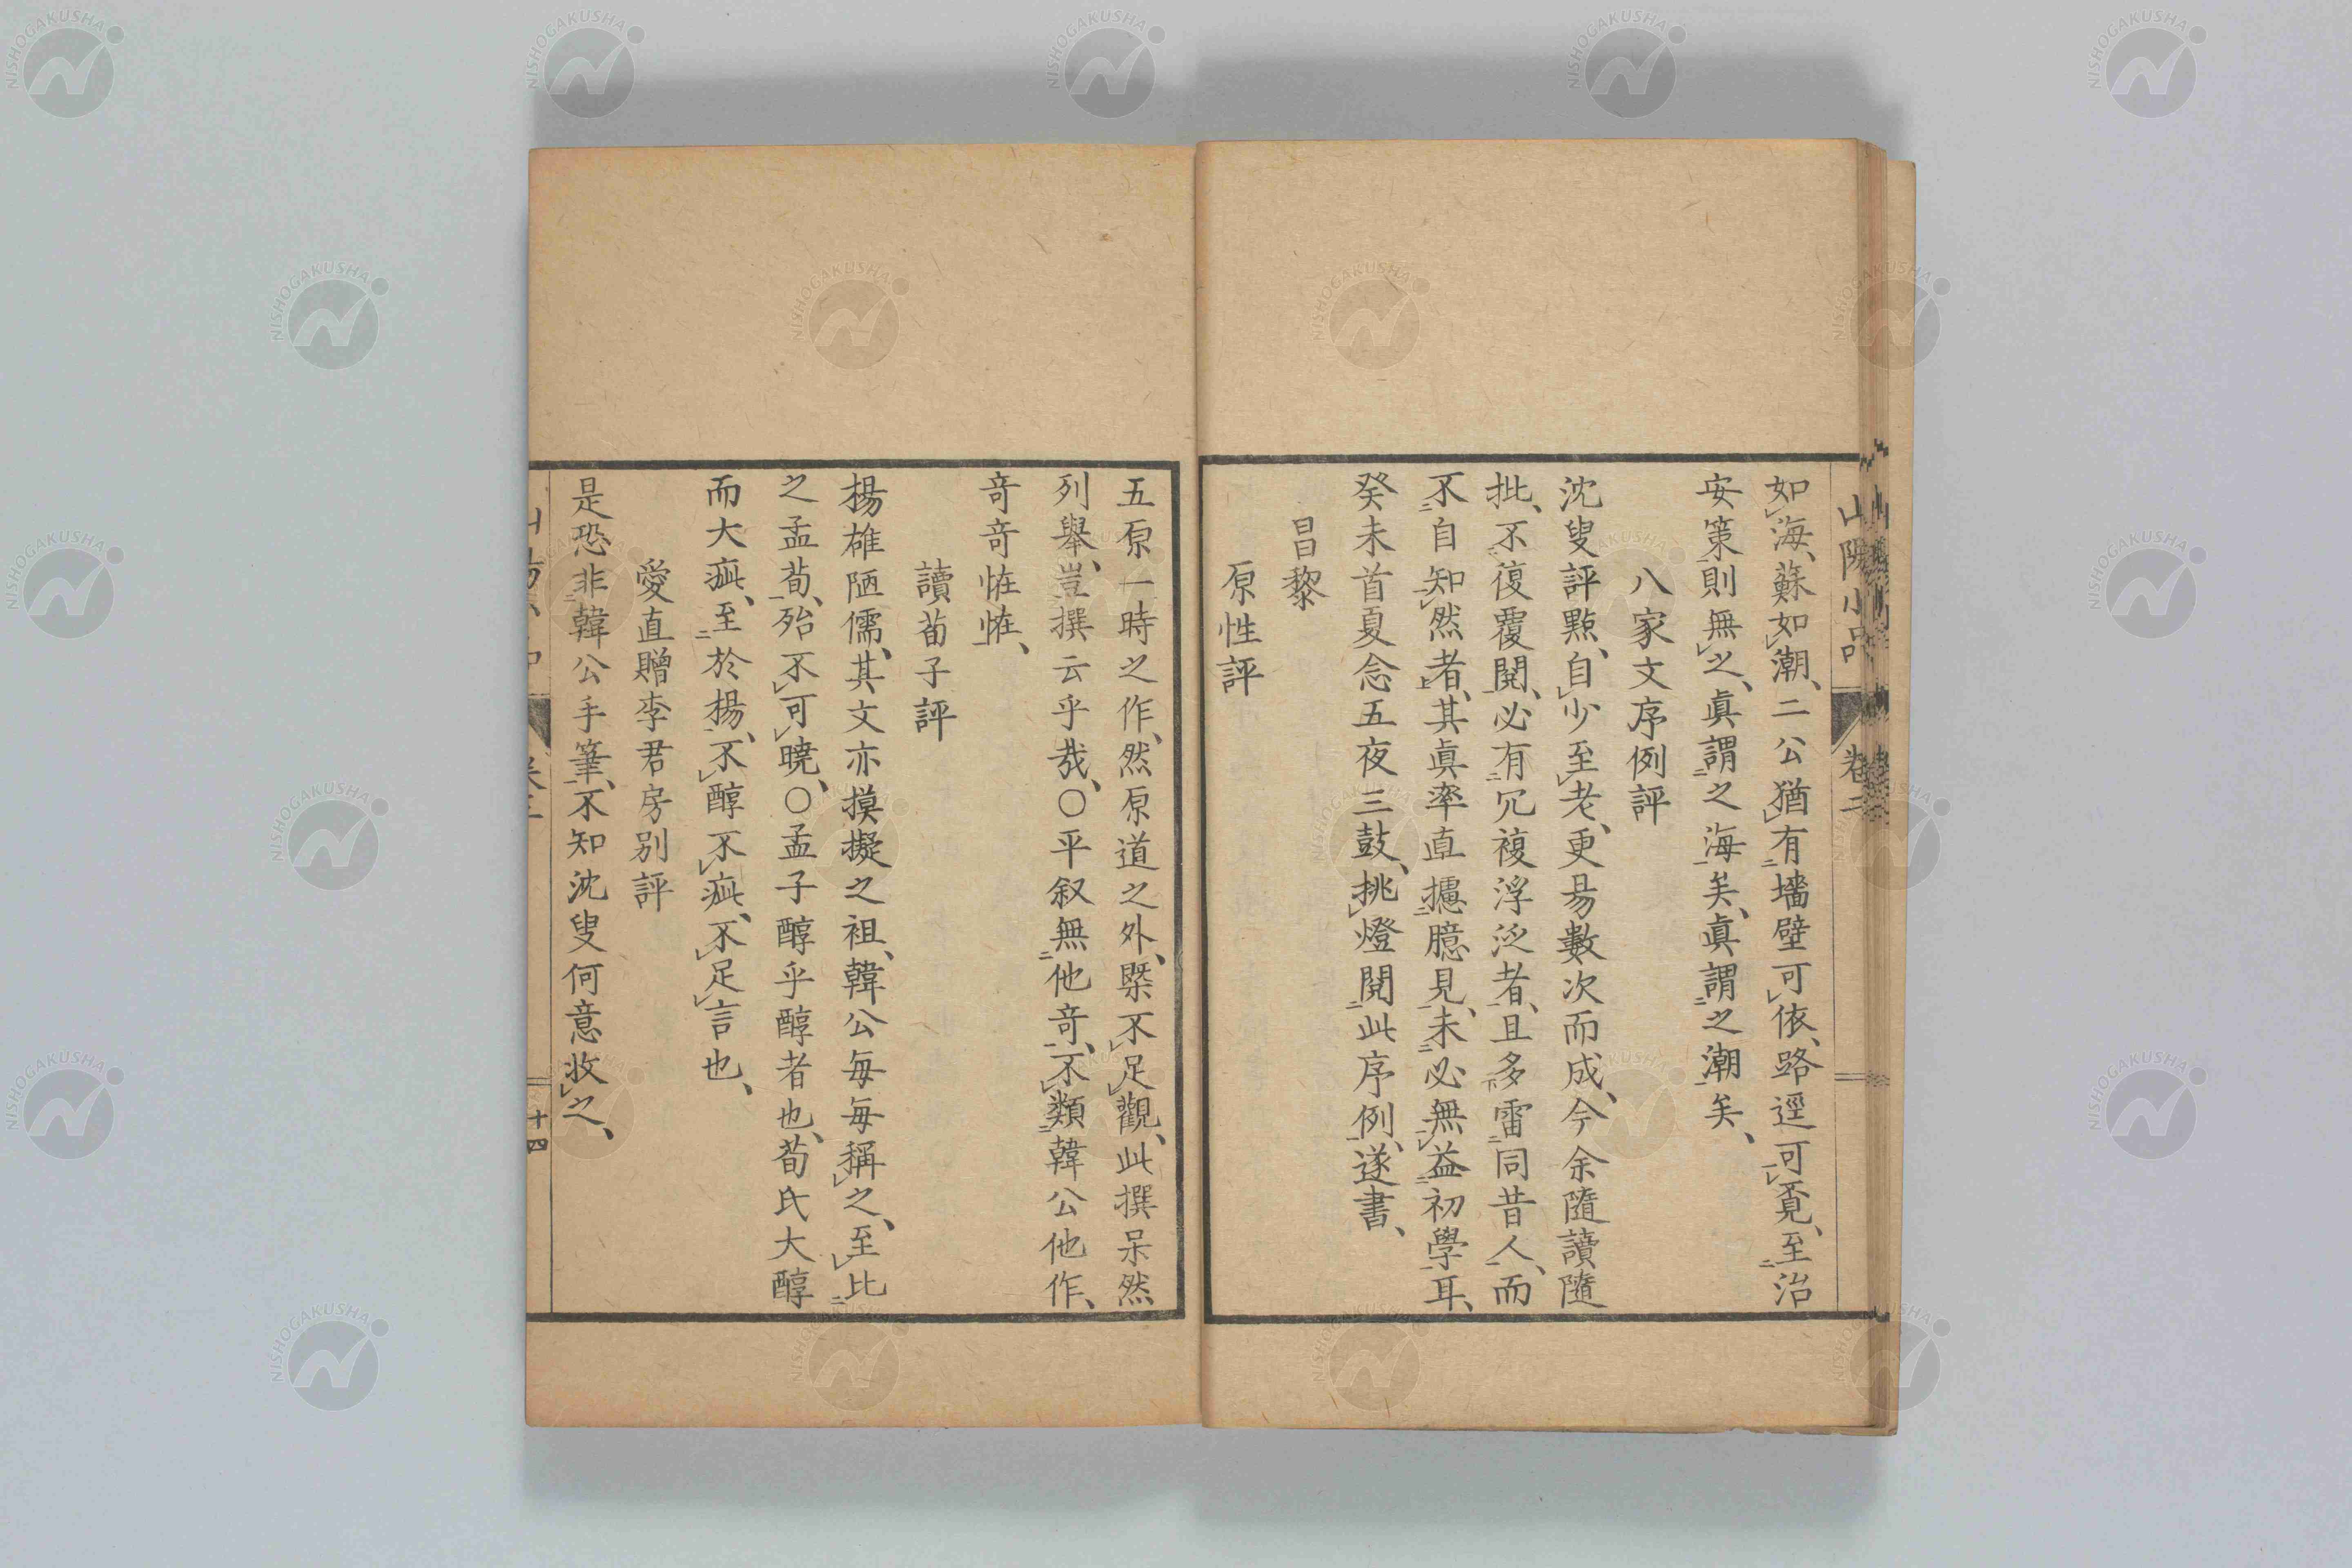 如海、蘇如潮、二公猶有墻壁可依、路逕可覓、至治
安策則無之、眞謂之海矣、眞謂之潮矣、
八家文序例評
沈叟評點、自少至老、更易數次而成、今余隨讀隨
批、不復覆閱、必有冗複浮泛者、且多雷同昔人、而
不自知然者、其眞率直攄臆見、未必無益初學耳、
癸未首夏念五夜三鼓、挑燈閱此序例、遂書、
昌黎
原性評
五原一時之作、然原道之外、槩不足觀、此撰呆然
列舉、豈撰云乎哉、○平叙無他奇、不類韓公他作、
奇奇恠恠、
讀荀子評
楊雄陋儒、其文亦摸擬之祖、韓公每每稱之、至比
之孟荀、殆不可曉、○孟子醇乎醇者也、荀氏大醇
而大疵、至於楊、不醇不疵、不足言也、
愛直贈李君房別評
是恐非韓公手筆、不知沈叟何意收之、
山陽小品 卷二
十四
NISHOGAKUSHA